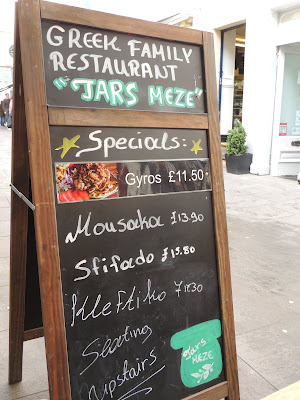 GREEK FAMILY
RESTAURANT
"JARS MEZE"
Specials:
Gyros £11.50
Mousaka £13.90
Stifado £15.80
Kleftiko £17.30
Seating
Upstairs
Jars
MEZE